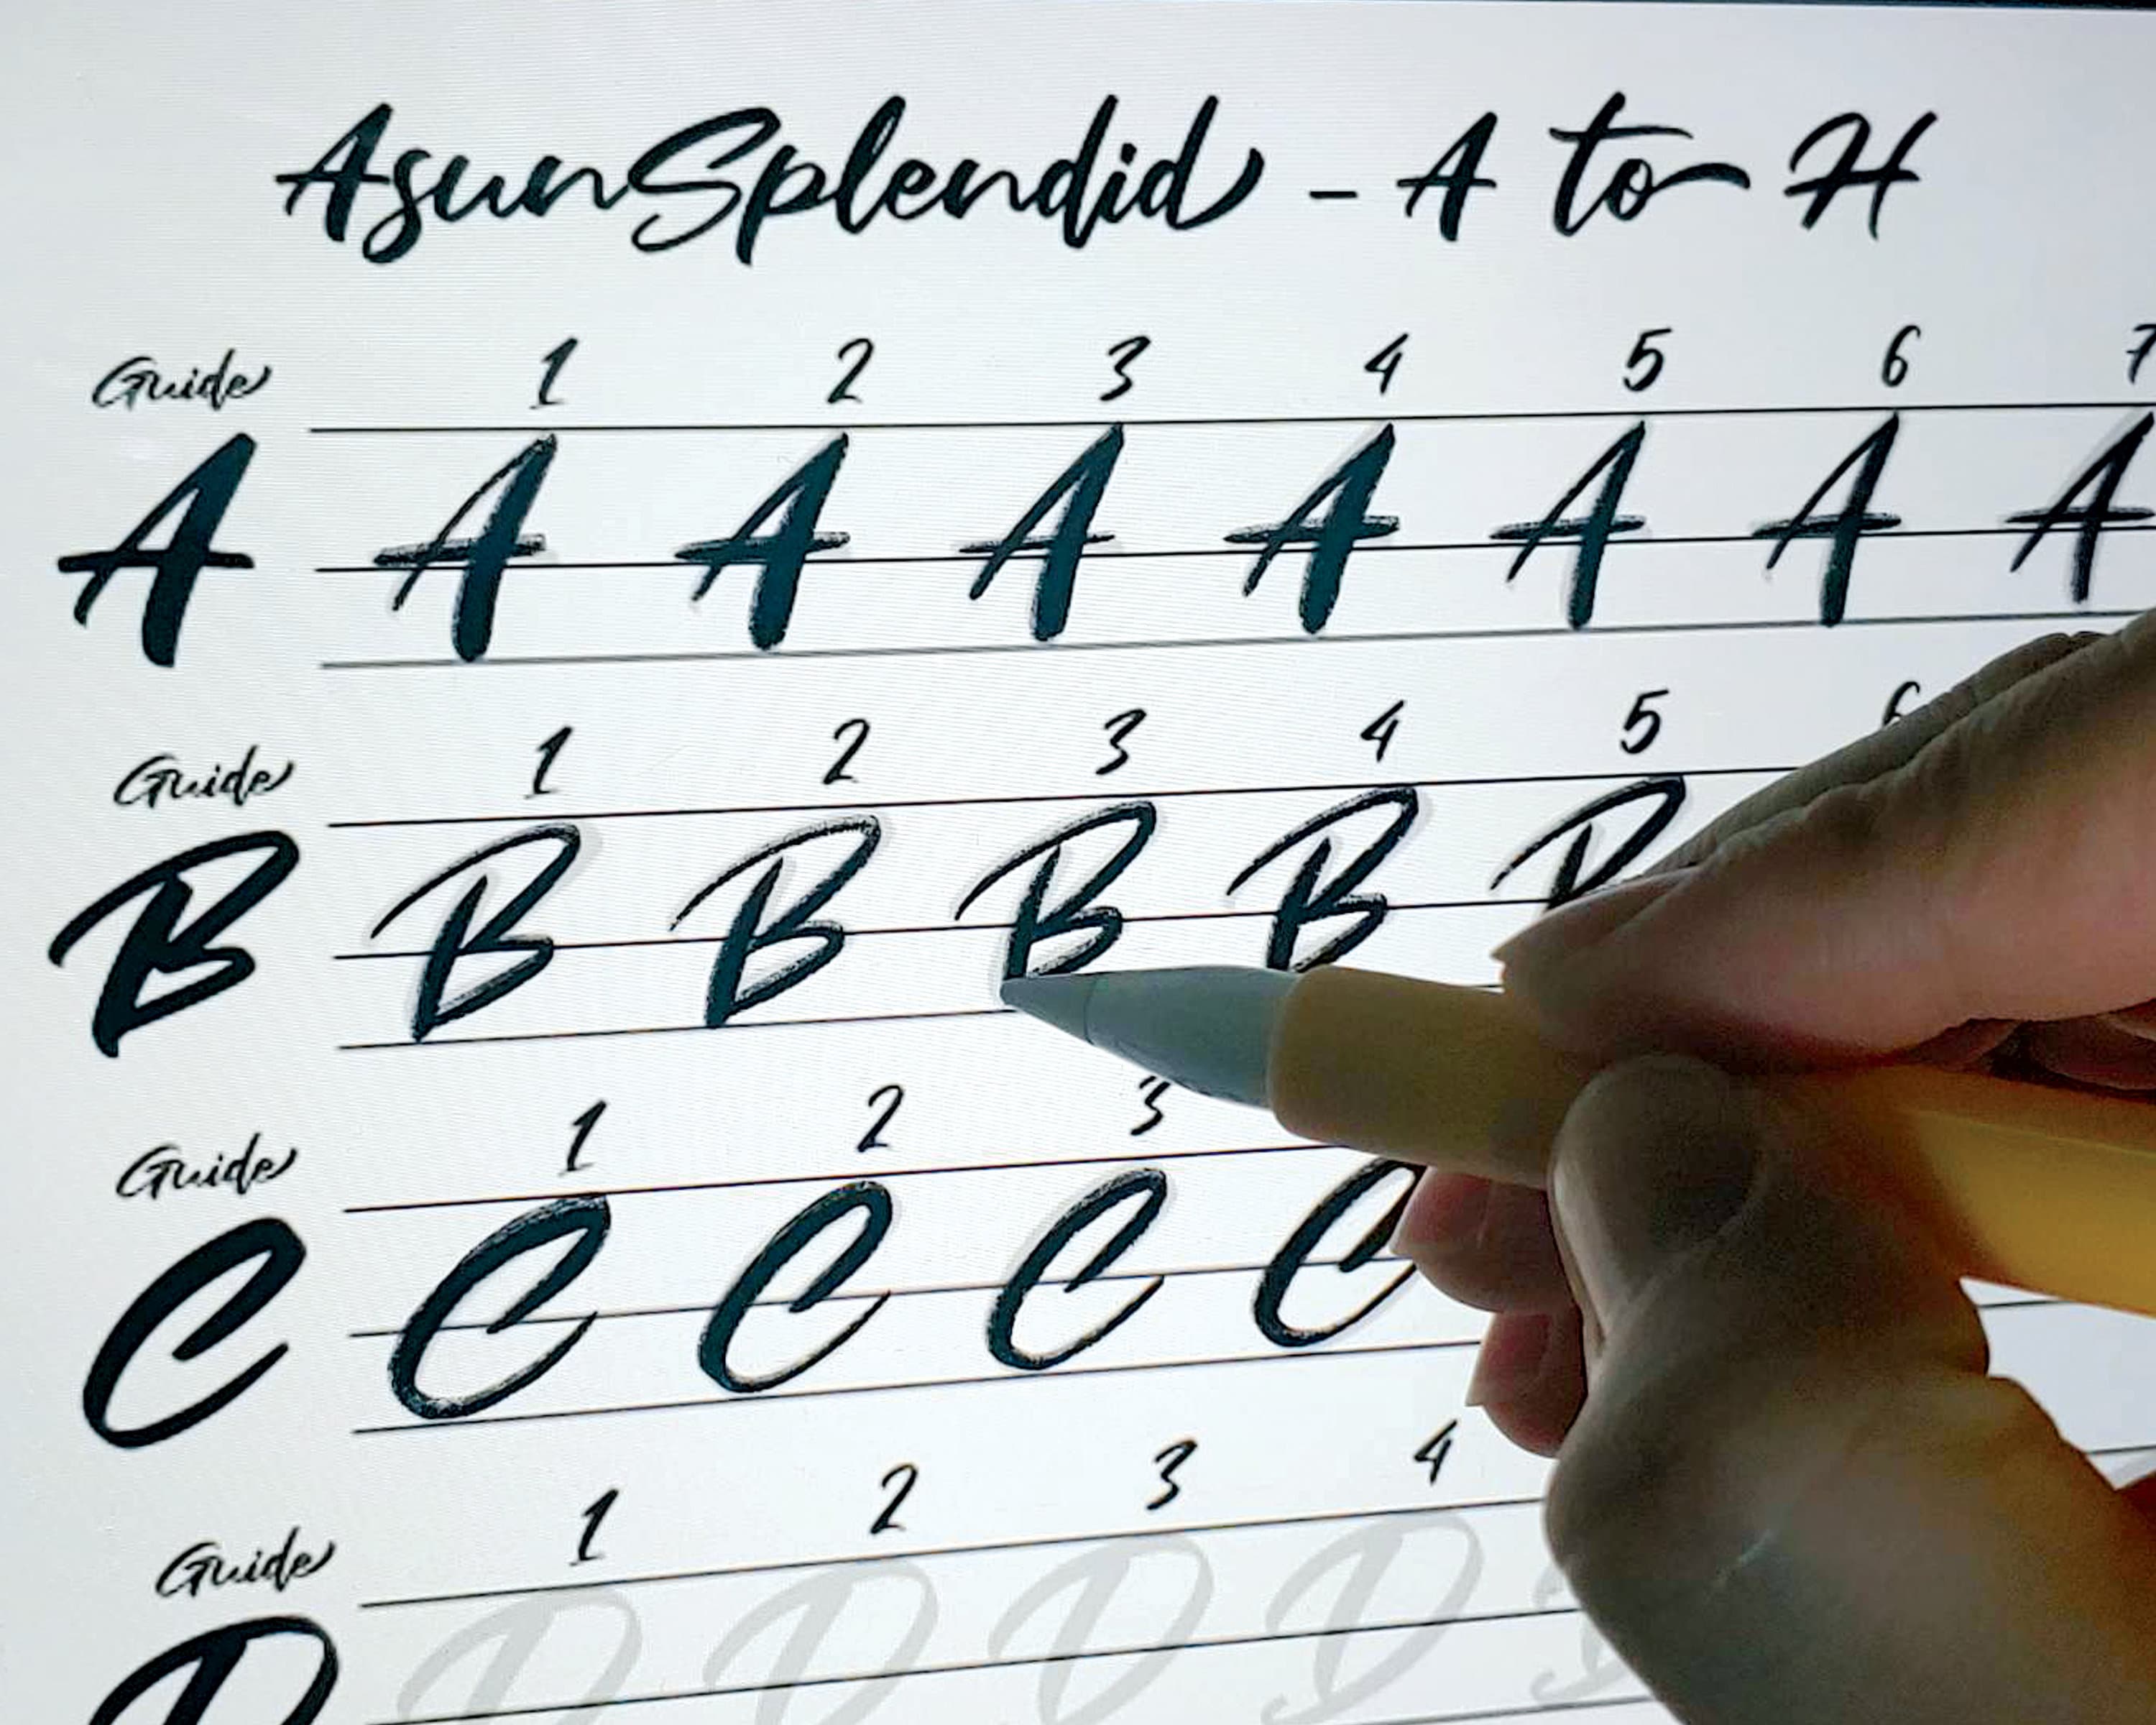 AsunSplendid - A to H
Guide 1 2 3 4 5 6 7
A A A A A A A A
Guide 1 2 3 4 5 6
B B B B B
Guide 1 2 3
C C C C C
Guide 1 2 3 4
D D D D D